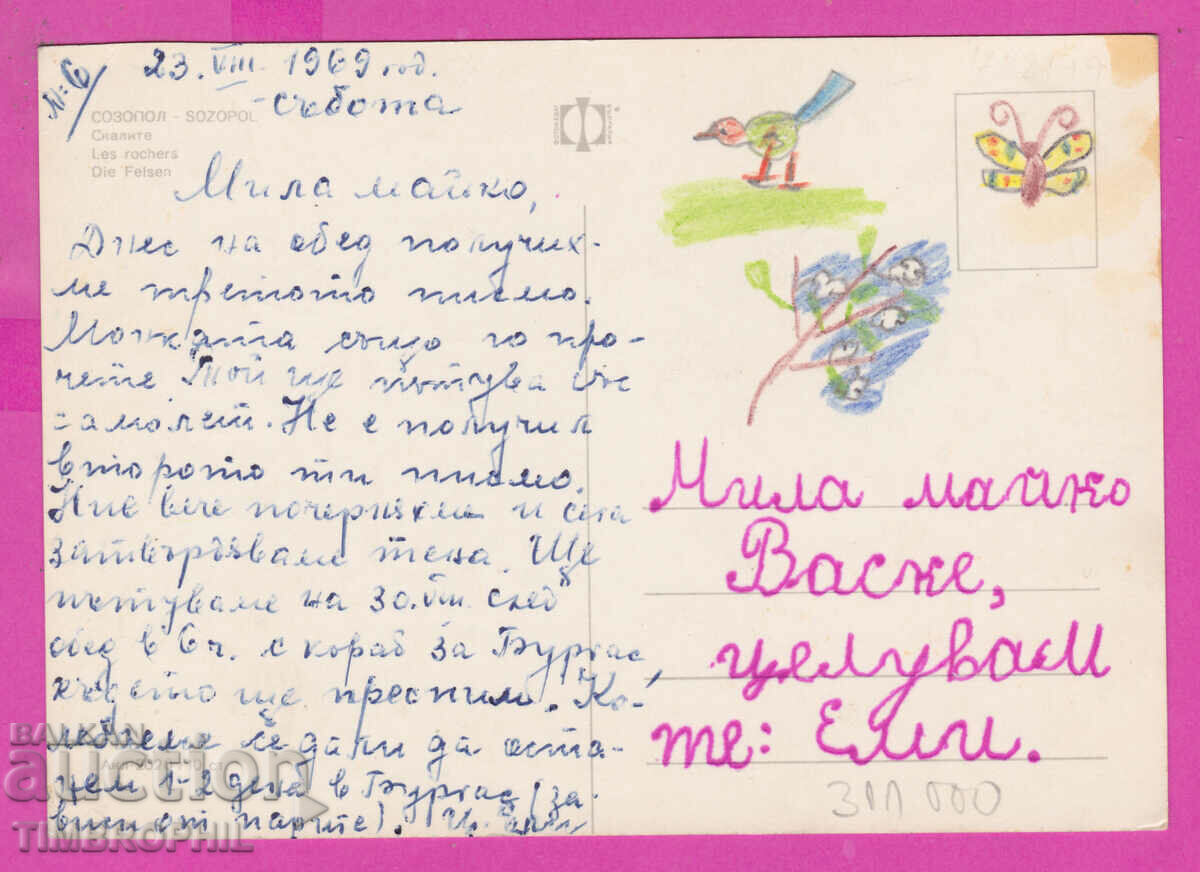 № 6
23. VIII. 1969 год.
събота
СОЗОПОЛ - SOZOPOL
Скалите
Les rochers
Die Felsen
Мила майко,
Днес на обед получих-
ме третото писмо.
също го про-
чете. Той ще пътува със
самолет. Не е получил
второто ти писмо.
Ние вече почерняхме и сега
затвърдяваме тена. Ще
пътуваме на 30.VIII. след
обед в 6 ч. с кораб за Бургас,
където ще преспим. Ко-
лебаем се дали да оста-
нем 1-2 дена в Бургас (за-
виси от парите).
Мила майко
Васке,
целувам
те: Елги.
311 000
BALKAN
auction
TIMBROPHIL